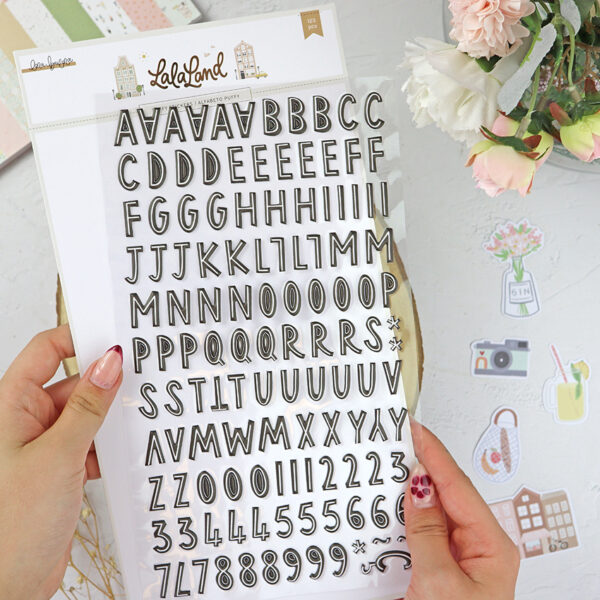 123
pcs
LalaLand
ALFABETO PUFFY
AAAAAABBBCC
CDDDEEEEEFF
FGGGHHHIIIII
JJJKKLLLLMM
MNNNNOOOOOP
PPPQQQRRRS*
SSTTTUUUUUV
VVWWWXXYYY
ZZ0001112223
33444555666
777888999*~
GIN